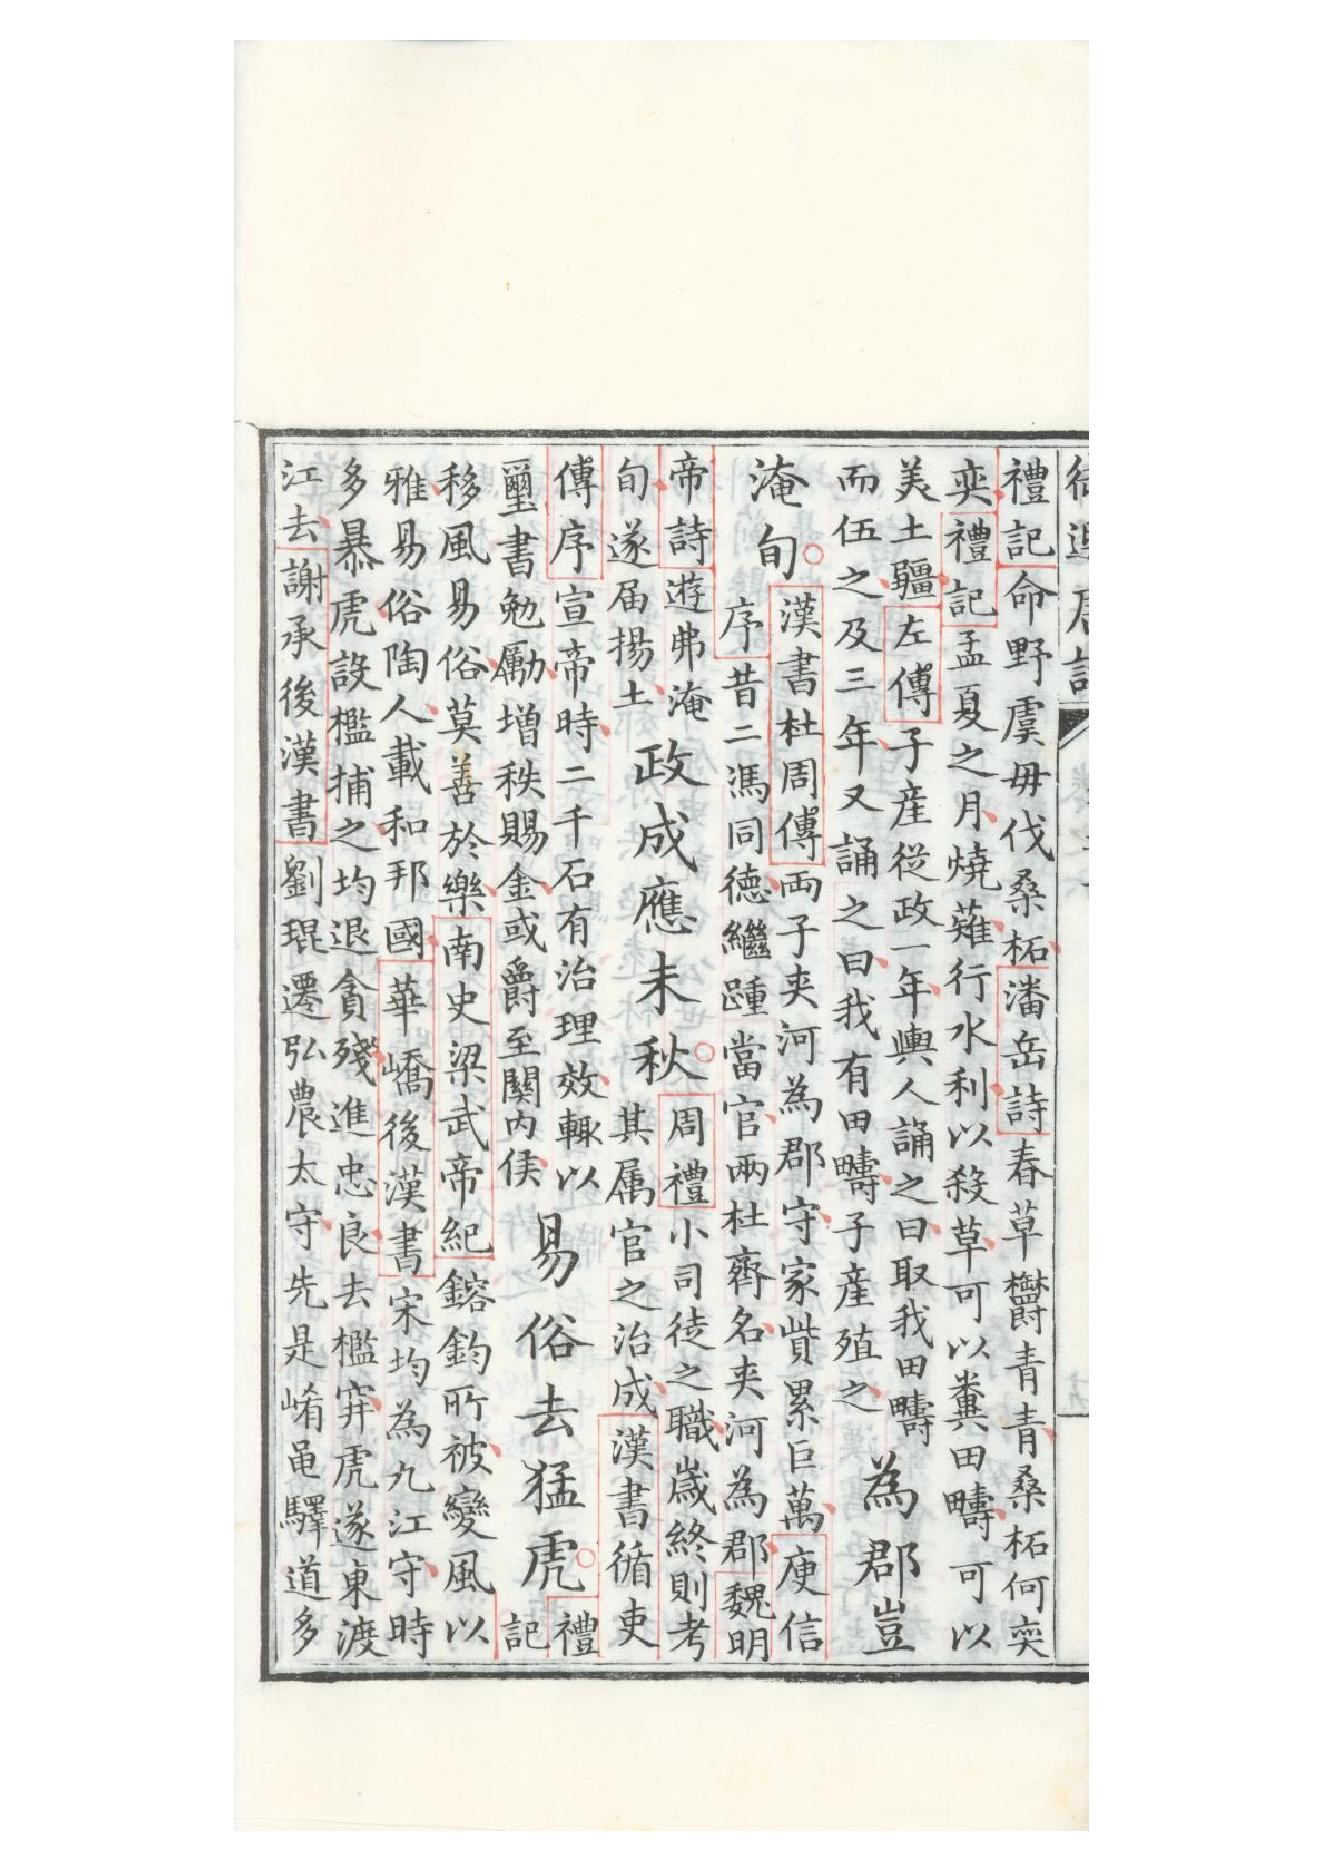 禮記命野虞毋伐桑柘潘岳詩春草欝青青桑柘何奕
奕禮記孟夏之月燒薙行水利以殺草可以糞田疇可以
美土疆左傳子產從政一年輿人誦之曰取我田疇
而伍之及三年又誦之曰我有田疇子產殖之
為郡豈
淹旬
漢書杜周傳両子夾河為郡守家貲累巨萬庾信
序昔二馮同德繼踵當官兩杜齊名夾河為郡魏明
帝詩遊弗淹
旬遂届揚土
政成應未秋
周禮小司徒之職歲終則考
其属官之治成漢書循吏
傳序宣帝時二千石有治理效輒以
璽書勉勵增秩賜金或爵至關内侯
易俗去猛虎
禮
記
移風易俗莫善於樂南史梁武帝紀鎔鈞所被變風以
雅易俗陶人載和邦國華嶠後漢書宋均為九江守時
多暴虎設檻捕之均退貪殘進忠良去檻穽虎遂東渡
江去謝承後漢書劉琨遷弘農太守先是崤黽驛道多